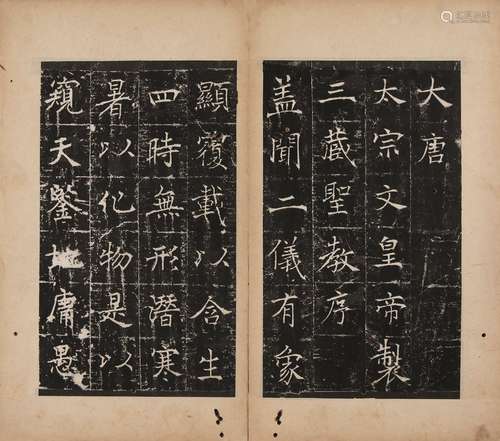 大唐
太宗文皇帝製
三藏聖教序
盖聞二儀有象
顯覆載以含生
四時無形潛寒
暑以化物是以
窺天鑒地庸愚